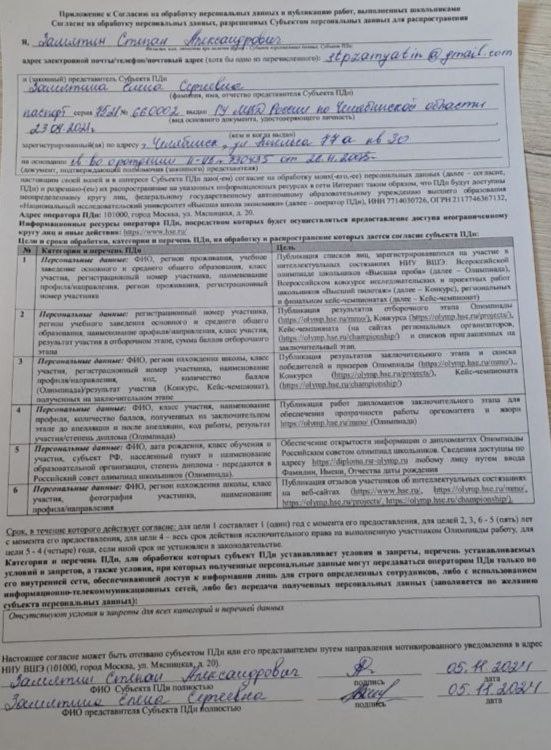 Приложение к Согласию на обработку персональных данных и публикацию работ, выполненных школьниками
Согласие на обработку персональных данных, разрешенных Субъектом персональных данных для распространения
Я, Замятин Степан Александрович
адрес электронной почты/телефон/почтовый адрес (хотя бы одно из перечисленного): stpzamyatin@gmail.com
и (законный) представитель Субъекта ПДн
Замятина Елена Сергеевна
(фамилия, имя, отчество представителя Субъекта ПДн)
паспорт серия 7521 № 660002 выдан ГУ МВД России по Челябинской области
(вид основного документа, удостоверяющего личность)
23.04.2021г.
(кем и когда выдан)
зарегистрированный(ая) по адресу г. Челябинск, ул. 77а кв 30
на основании св во о рождении
(документ, подтверждающий полномочия законного представителя)
настоящим своей волей и в интересе Субъекта ПДн даю(-ем) согласие на обработку моих(-его,-ее) персональных данных (далее – согласие,
ПДн) и разрешаю(-ем) их распространение на указанных информационных ресурсах в сети Интернет таким образом, что ПДн будут доступны
неопределенному кругу лиц, федеральному государственному автономному образовательному учреждению высшего образования
«Национальный исследовательский университет «Высшая школа экономики» (далее – оператор ПДн), ИНН 7714030726, ОГРН 2117746367132,
Адрес оператора ПДн: 101000, город Москва, ул. Мясницкая, д. 20.
Информационные ресурсы оператора ПДн, посредством которых будет осуществляться предоставление доступа неограниченному
кругу лиц и иные действия: https://www.hse.ru/
Цели и сроки обработки, категории и перечень ПДн, на обработку и распространение которых дается согласие субъекта ПДн:
№ Категории и перечень ПДн Цель
Персональные данные: ФИО, регион проживания, учебное
заведение основного и среднего общего образования, класс
участия, регистрационный номер участника, наименование
профиля/направления, регион проживания, регистрационный
номер участника
Публикация списков лиц, зарегистрировавшихся на участие в
интеллектуальных состязаниях НИУ ВШЭ: Всероссийской
олимпиаде школьников «Высшая проба» (далее – Олимпиада),
Всероссийском конкурсе исследовательских и проектных работ
школьников «Высший пилотаж» (далее – Конкурс), региональных
и финальном кейс-чемпионатах (далее – Кейс-чемпионат)
2 Персональные данные: регистрационный номер участника,
регион учебного заведения основного и среднего общего
образования, наименование профиля/направления, класс участия,
результат участия в отборочном этапе, сумма баллов отборочного
этапа
Публикация результатов отборочного этапа Олимпиады
(https://olymp.hse.ru/mmo/), Конкурса (https://olymp.hse.ru/projects/),
Кейс-чемпионата (на сайтах региональных организаторов,
https://olymp.hse.ru/championship/) и списков приглашенных на
заключительный этап.
3 Персональные данные: ФИО, регион нахождения школы, класс
участия, регистрационный номер участника, наименование
профиля/направления, код, количество баллов
(Олимпиада)/результат участия (Конкурс, Кейс-чемпионат),
полученных на заключительном этапе
Публикация результатов заключительного этапа и списка
победителей и призеров Олимпиады (https://olymp.hse.ru/mmo/),
Конкурса (https://olymp.hse.ru/projects/), Кейс-чемпионата
(https://olymp.hse.ru/championship/)
4 Персональные данные: ФИО, класс участия, наименование
профиля, количество баллов, полученных на заключительном
этапе до апелляции и после апелляции, код работы, результат
участия/степень диплома (Олимпиада)
Публикация работ дипломантов заключительного этапа для
обеспечения прозрачности работы оргкомитета и жюри
https://olymp.hse.ru/mmo/ (Олимпиада)
5 Персональные данные: ФИО, дата рождения, класс обучения и
участия, субъект РФ, населенный пункт и наименование
образовательной организации, степень диплома - передаются в
Российский совет олимпиад школьников (Олимпиада).
Обеспечение открытости информации о дипломантах Олимпиады
Российским советом олимпиад школьников. Сведения доступны по
адресу https://diploma.rsr-olymp.ru любому лицу путем ввода
Фамилии, Имени, Отчества и даты рождения
6 Персональные данные: ФИО, регион нахождения школы, класс
участия, фотография участника, наименование
профиля/направления
Публикация отзывов участников об интеллектуальных состязаниях
на веб-сайтах (https://www.hse.ru/, https://olymp.hse.ru/mmo/,
https://olymp.hse.ru/projects/, https://olymp.hse.ru/championship/).
Срок, в течение которого действует согласие: для цели 1 составляет 1 (один) год с момента его предоставления, для целей 2, 3, 6 - 5 (пять) лет
с момента его предоставления, для цели 4 – весь срок действия исключительного права на выполненную участником Олимпиады работу, для
цели 5 - 4 (четыре) года, если иной срок не установлен в законодательстве.
Категории и перечень ПДн, для обработки которых субъект ПДн устанавливает условия и запреты, перечень устанавливаемых
условий и запретов, а также условия, при которых полученные персональные данные могут передаваться оператором ПДн только по
его внутренней сети, обеспечивающей доступ к информации лишь для строго определенных сотрудников, либо с использованием
информационно-телекоммуникационных сетей, либо без передачи полученных персональных данных (заполняется по желанию
субъекта персональных данных):
Отсутствуют условия и запреты для всех категорий и перечней данных
Настоящее согласие может быть отозвано субъектом ПДн или его представителем путем направления мотивированного уведомления в адрес
НИУ ВШЭ (101000, город Москва, ул. Мясницкая, д. 20).
Замятин Степан Александрович 05.11.2024
ФИО Субъекта ПДн полностью подпись дата
Замятина Елена Сергеевна 05.11.2024
ФИО представителя Субъекта ПДн полностью подпись дата